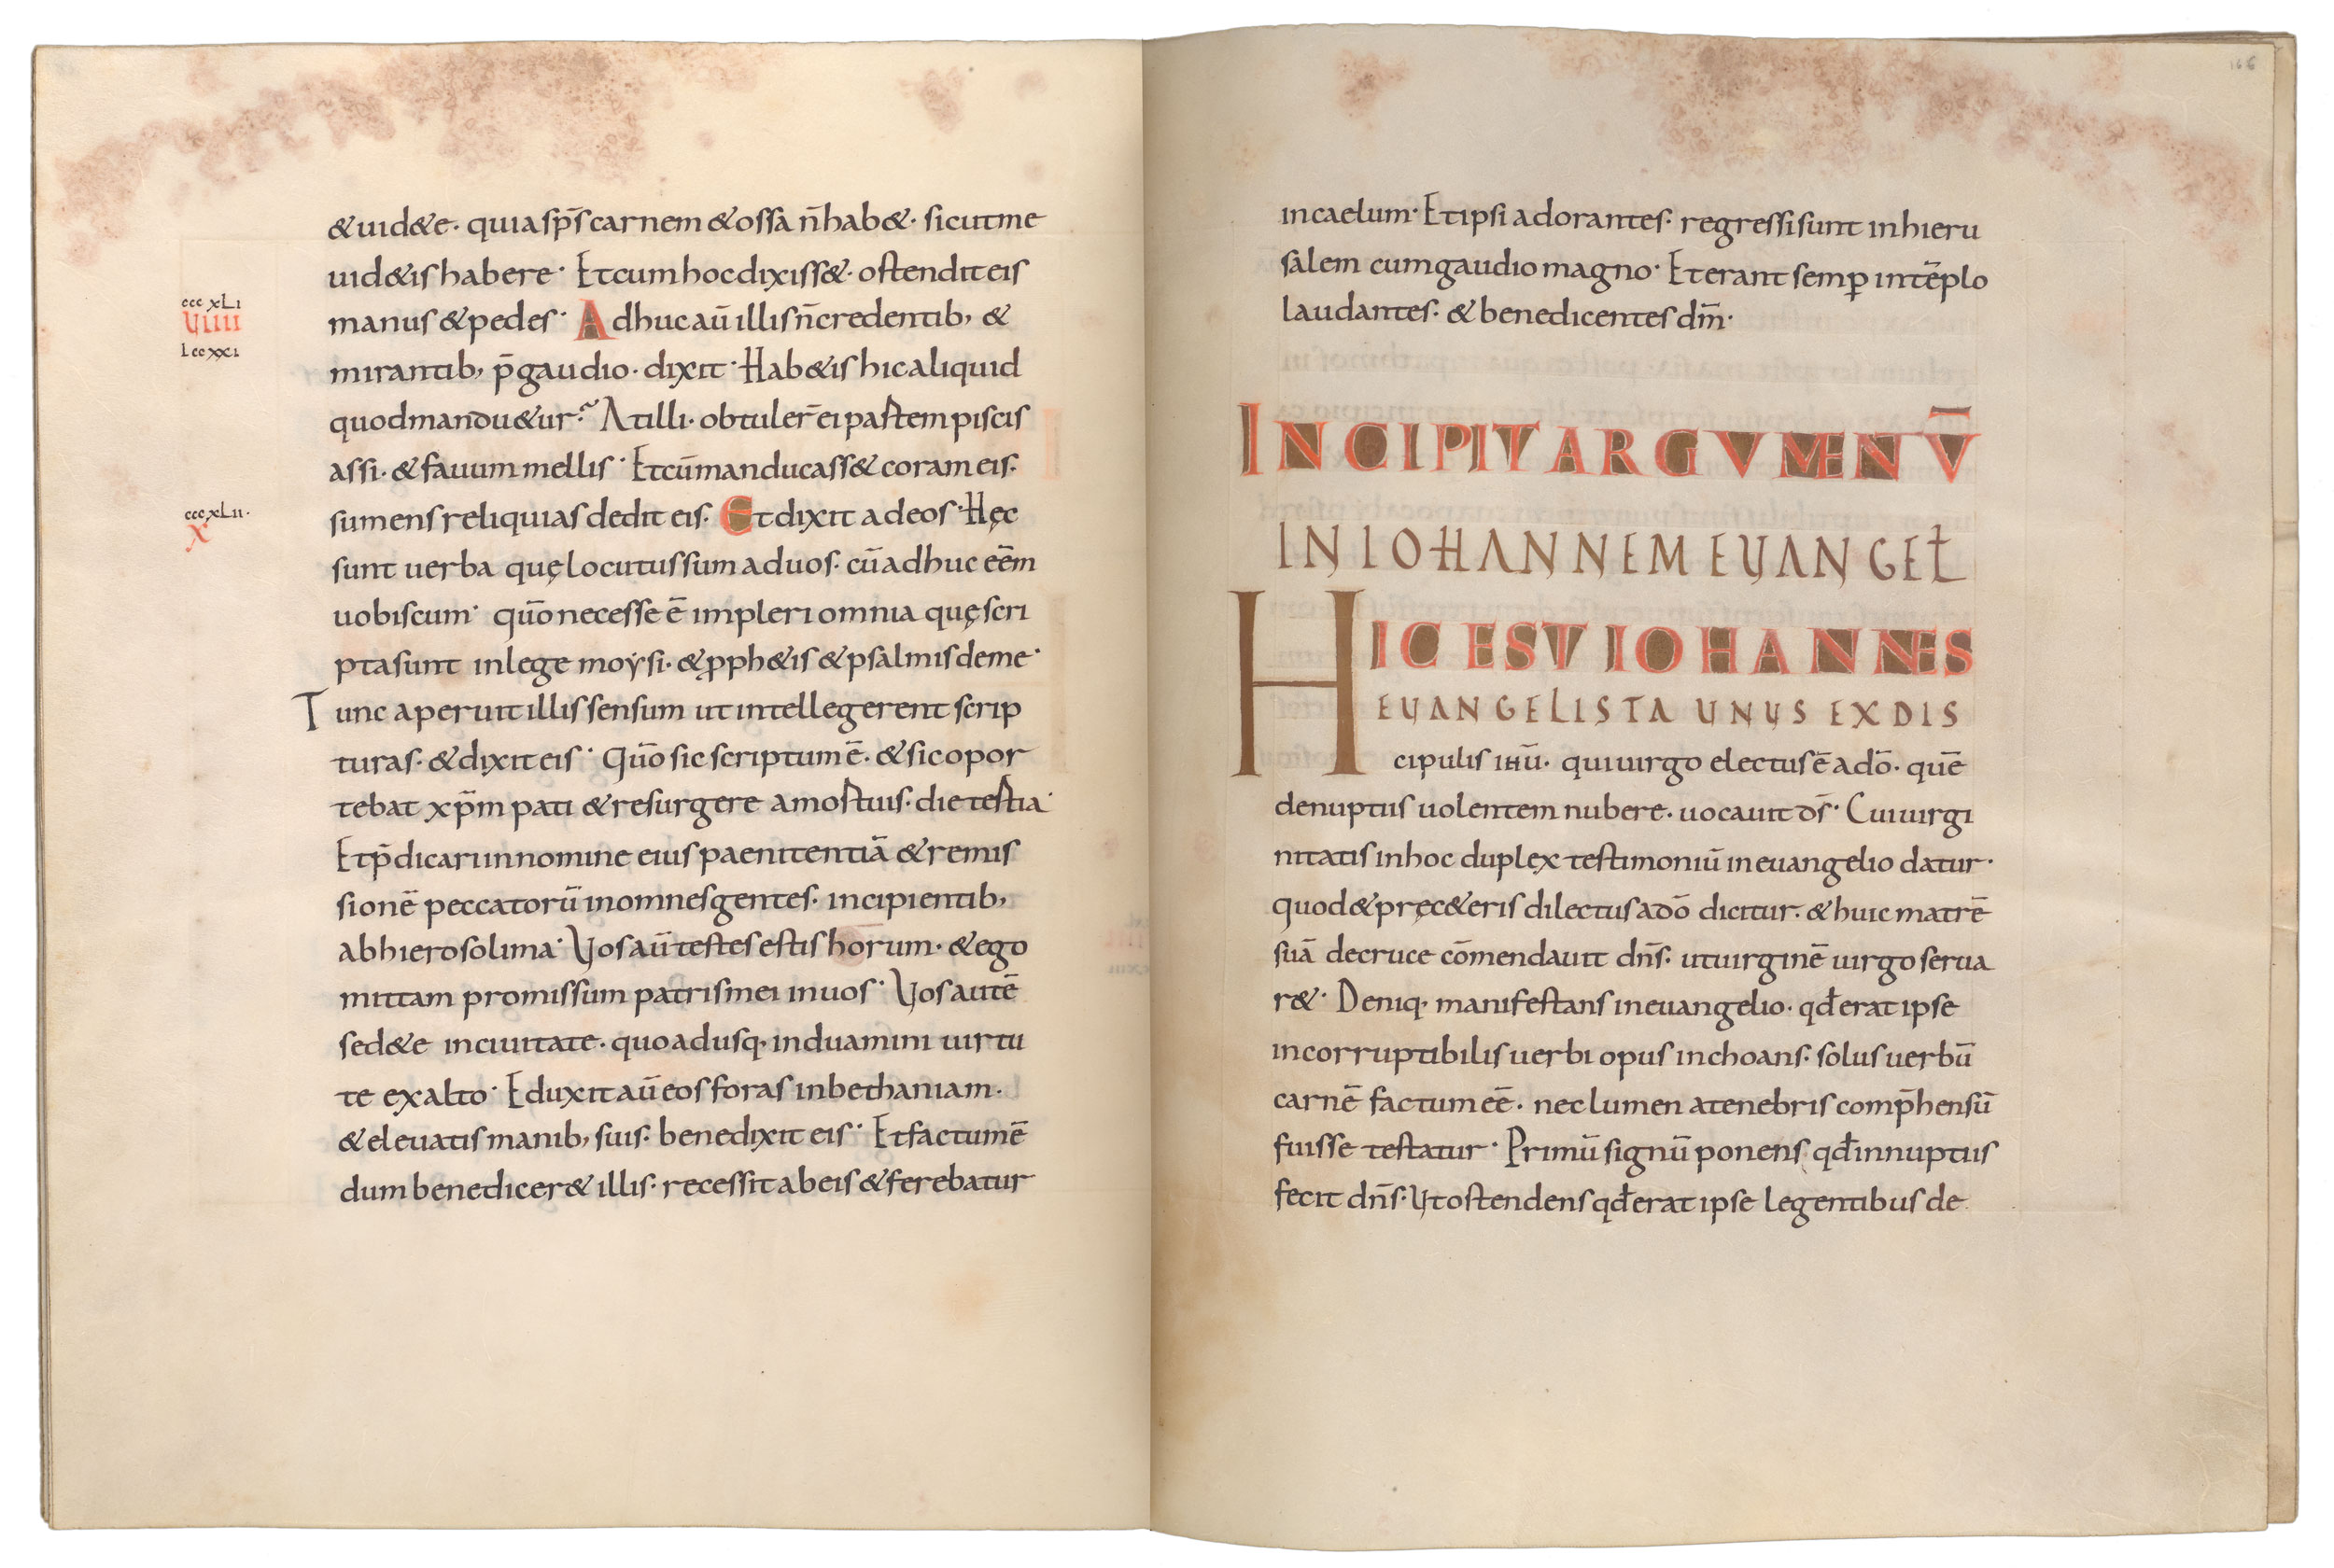 &uid&e· quia sp̄s carnem & ossa n̄ hab&· sicut me
uid&is habere· Et cum hoc dixiss&· ostendit eis
cccxLi
manus & pedes· Adhuc aū illis n̄ credentib; &
uiiii
Lccxxi
mirantib; p̄ gaudio· dixit· Hab&is hic aliquid
quod manducetur? At illi· obtuler̄ ei partem piscis
assi· & fauum mellis· Et cū manducass& coram eis·
cccxLii·
sumens reliquias dedit eis· Et dixit ad eos· Hęc
x
sunt uerba quę locutus sum ad uos· cū adhuc eēm
uobiscum· qūo necesse ē impleri omnia quę scri
pta sunt in lege moysi· & pph&is & psalmis de me·
Tunc aperuit illis sensum ut intellegerent scrip
turas· & dixit eis· Qūo sic scriptum ē· & sic opor
tebat xp̄m pati & resurgere a mortuis· die tertia·
Et p̄dicari in nomine eius paenitentiā & remis
sionē peccatorū in omnes gentes· incipientib;
ab hierosolima· Vos aū testes estis horum· & ego
mittam promissum patris mei in uos· Vos autē
sed&e in ciuitate· quo adusq· induamini uirtu
te ex alto· Eduxit aū eos foras in bethaniam·
& eleuatis manib; suis· benedixit eis· Et factum ē
dum benedicer& illis· recessit ab eis & ferebatur
166
in caelum· Et ipsi adorantes· regressi sunt in hieru
salem cum gaudio magno· Et erant semp in tēplo
laudantes· & benedicentes dm̄·
INCIPIT ARGVMENV̄
IN IOHANNEM EUANGEŁ
HIC EST IOHANNES
EUANGELISTA UNUS EX DIS
cipulis ihū· qui uirgo electus ē a dō· quē
de nuptiis uolentem nubere· uocauit ds̄· Cui uirgi
nitatis in hoc duplex testimoniū in euangelio datur·
quod & pręc&eris dilectus a dō dicitur· & huic matrē
suā de cruce cōmendauit dn̄s· ut uirginē uirgo serua
r&· Deniq· manifestans in euangelio· qđ erat ipse
incorruptibilis uerbi opus inchoans· solus uerbū
carnē factum eē· nec lumen a tenebris comp̄hensū
fuisse testatur· Primū signū ponens qđ in nuptiis
fecit dn̄s· Ut ostendens qđ erat ipse legentibus de